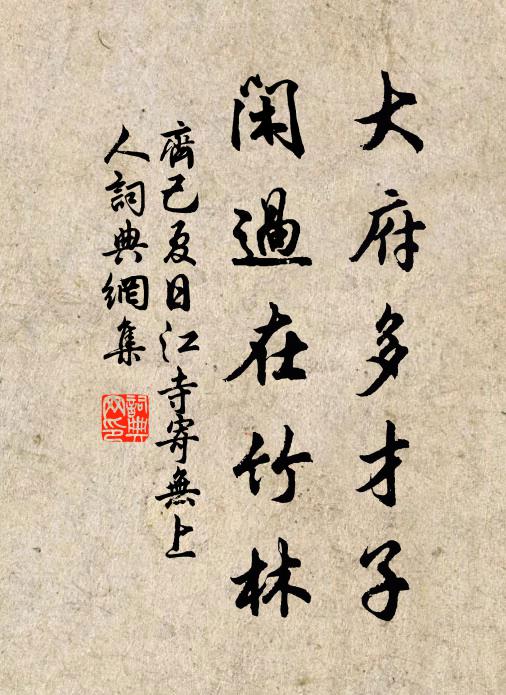 大府多才子
閑過在竹林
齊己夏日江寺寄無上
人詞典網集
詞典
網印